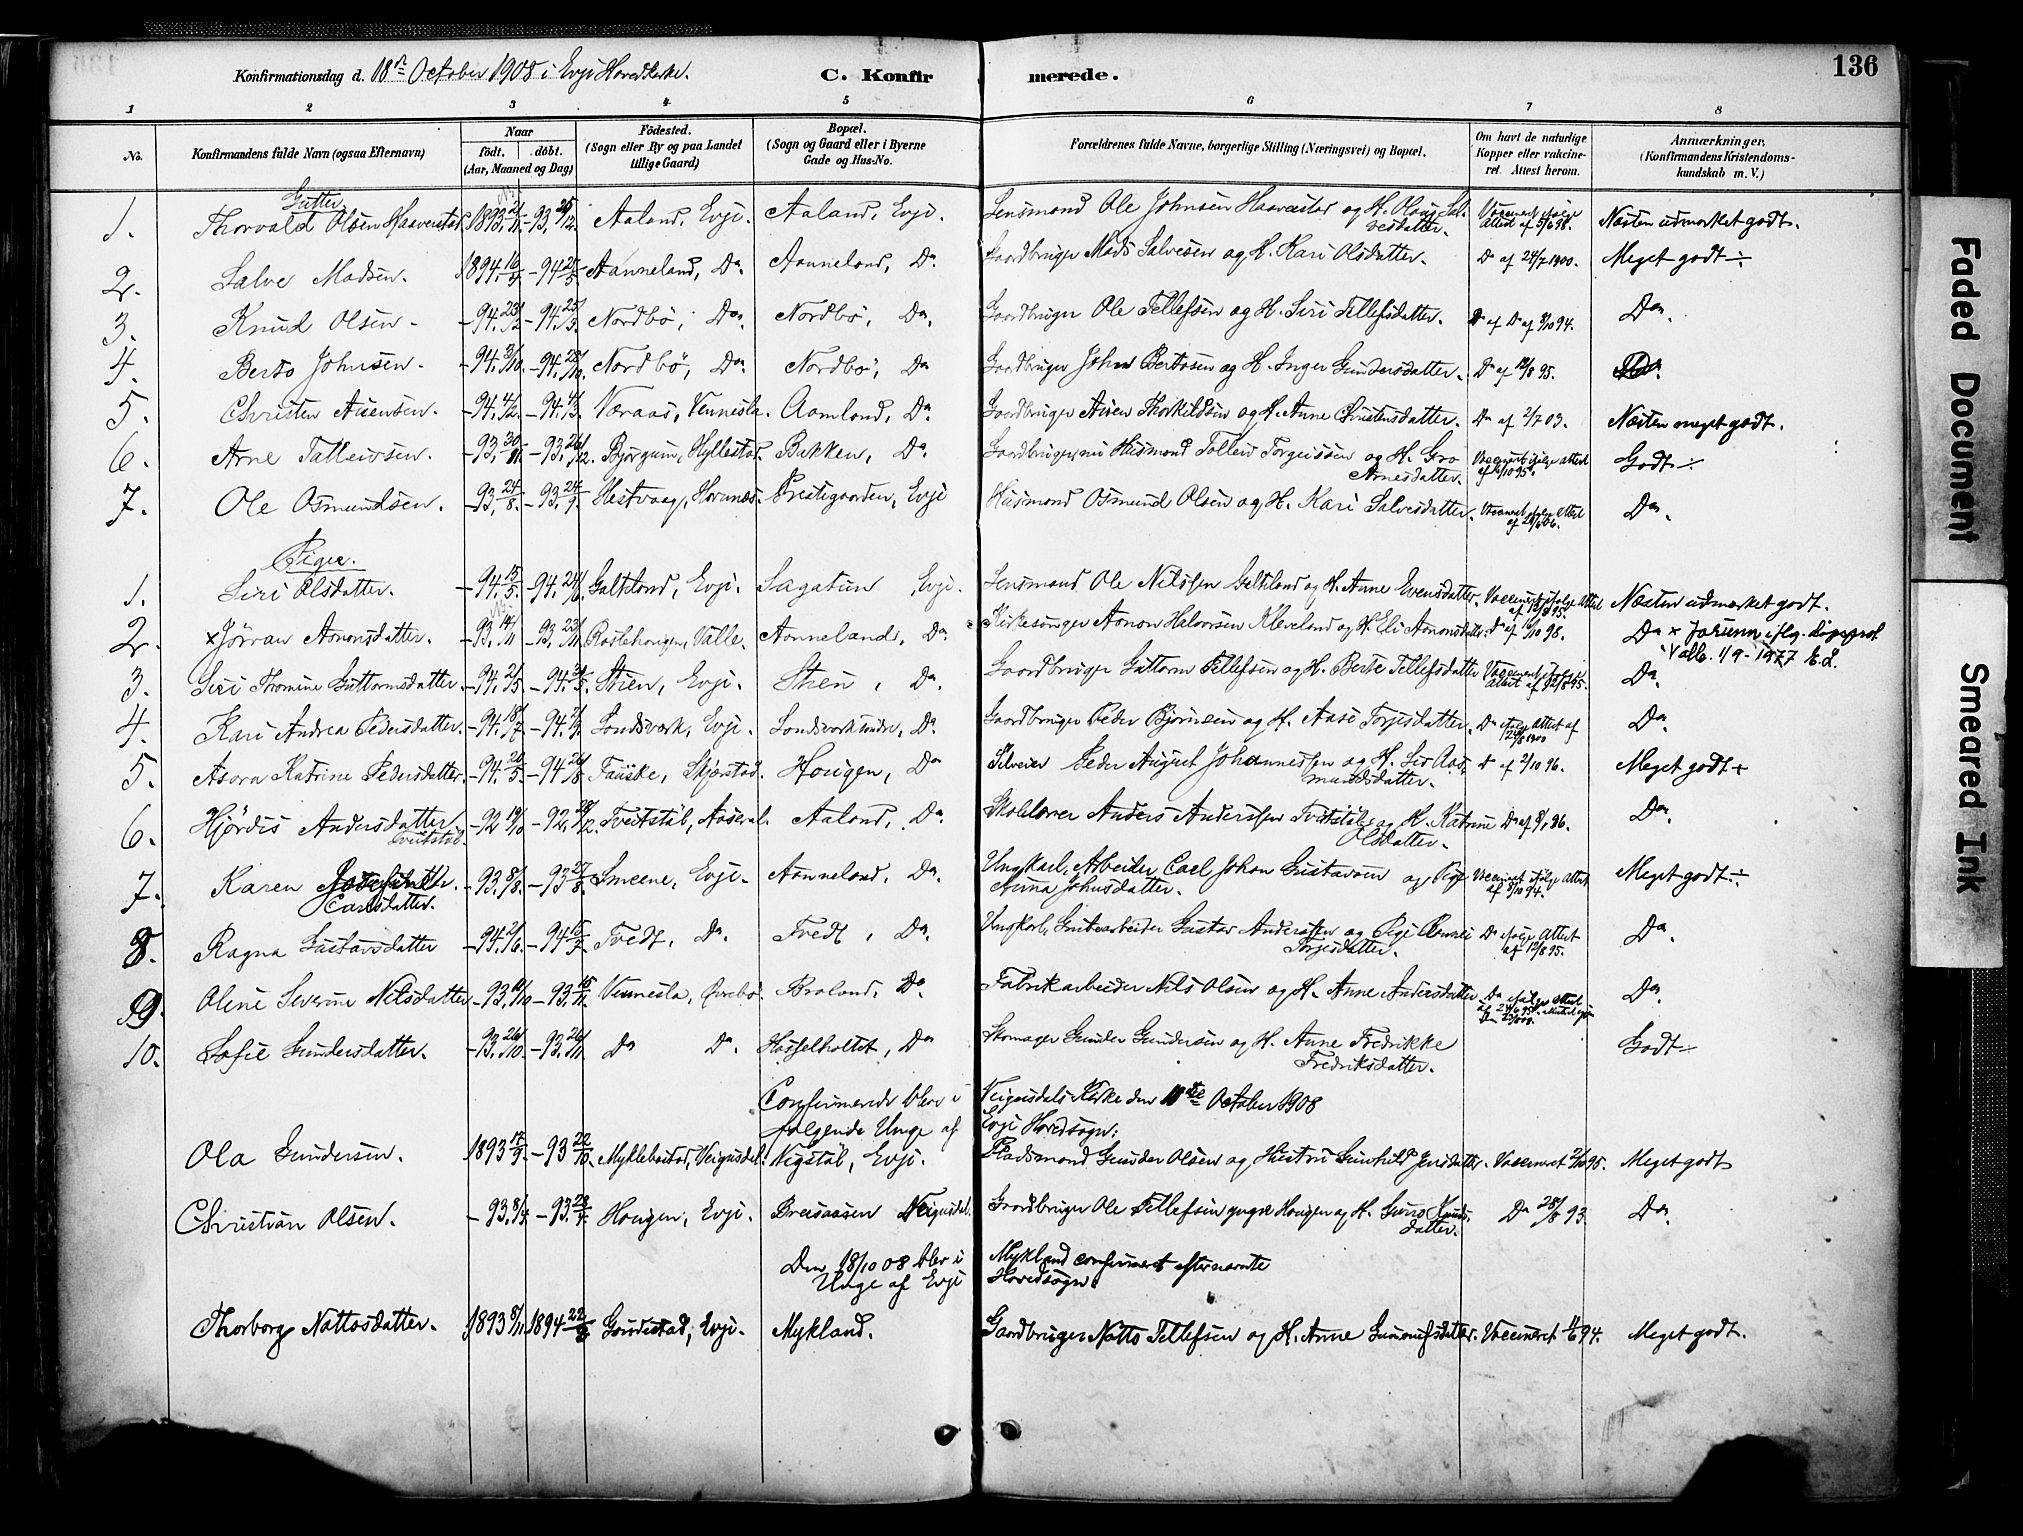 136
Konfirmationsdag d. 18de October 1908 i Evje Hovedkirke.
C. Konfirmerede.
1 2 3 4 5 6 7 8
No.
Konfirmandens fulde Navn (ogsaa Efternavn)
Naar
født. døbt.
(Aar, Maaned og Dag)
Fødested.
(Sogn eller By og paa Landet
tillige Gaard)
Bopæl.
(Sogn og Gaard eller i Byerne
Gade og Hus-No.
Forældrenes fulde Navne, borgerlige Stilling (Næringsvei) og Bopæl.
Om havt de naturlige
Kopper eller vakcine-
ret. Attest herom.
Anmærkninger.
(Konfirmandens Kristendoms-
kundskab m. V.)
Gutter
1. Thorvald Olsen Haaverstad 1893 Aaland, Evje. Aaland, Evje. Lensmand Ole Johnsen Haaverstad og H. Olavi Sal-
vesdatter. Vaccineret ifølge
Attest af 5/6 98. Næsten udmærket godt.
2. Salve Madsen. 1894 Aanneland, Do. Aanneland, Do. Gaardbruger Mads Salvesen og H. Kari Olsdatter. Do af 24/7 1900. Meget godt ÷
3. Knud Olsen. - 94. 23/2 - 94. 25/3 Nordbø, Do. Nordbø, Do. Gaardbruger Ole Tellefsen og H. Siri Tellefsdatter. Do.
4. Berto Johnsen. - 94. 3/10 - 94. 28/10 Nordbø, Do. Nordbø, Do Gaardbruger John Bertosen og H. Inger Gundersdatter. Do af 12/8 95. Do.
5. Christen Ausensen. - 94. 4/2 - 94. 4/3 Næraas, Vennesla. Aamland, Do. Gaardbruger Ausen Thorkildsen og H. Anne Christensdatter. Do af 2/7 03. Næsten meget godt.
6. Arne Talleivsen. - 93. 30/11 - 93. 26/12 Bjørgum, Hyllestad. Bakken, Do. Gaardbruger, nu Husmand Tallew Torgeissen og H. Gro
Arnesdatter. Vaccineret ifølge Attest
Godt ÷
7. Ole Osmundsen. - 93. 24/8 - 93. 24/9 Hestvaag, Hornnes. Prestegaarden, Evje Husmand Osmund Olsen og H. Kari Salvesdatter. Vaccineret ifølge Attest
Do.
Piger.
1. Siri Olsdatter. - 94. 15/5 - 94. 24/6 Galteland, Evje. Sagatun Evje. Lensmand Ole Nilssen Galteland og H. Anne Evensdatter. Vaccineret ifølge Attest
af 13/8 95. Næsten udmærket godt.
2. × Jørran Aanonsdatter. - 93. 14/11 - 93. 23/11 Rostehougen, Valle. Aanneland, Do. Kirkesanger Aanon Halvorsen Kleveland og H. Eli Aanonsdatter. Do af 16/10 98. Do × Jorunn iflg. dåpsprot.
Valle. 1/9 - 1977 E.L.
3. Siri Thomine Guttormsdatter. - 94. 2/5 - 94. 3/5 Strien, Evje. Strien, Do. Gaardbruger Guttorm Tellefsen og H. Berte Tellefsdatter Vaccineret ifølge
Attest af 12/8 95. Do.
4. Kari Andrea Pedersdatter. - 94. 18/7 Landsverk, Evje. Landsverk undre, Do. Gaardbruger Peder Bjørnsen og H. Aase Torjesdatter. Do ifølge Attest af
24/8 1900 Do.
5. Asora Katrine Pedersdatter. - 94. 20/5 - 94. 26/8 Fauske, Skjerstad. Hougen, Do Peder August Johannessen og H. Gro Aas-
mundsdatter. Do af 2/10 96. Meget godt +
6. Hjørdis Andersdatter
Tveitstøl. - 92 19/10 - 92. 28/12 Tveitstøl, Aaseral. Aaland, Do. Skolelærer Anders Anderssen Tveitstøl og H. Katrine
Olsdatter. Do.
7. Karen Josefine
Carlsdatter. - 93. 8/8 - 93. 27/8 Smeene, Evje. Aanneland, Do. Ungkarl, Arbeider Carl Johan Gustavsen og Pige
Anna Johnsdatter. Vaccineret ifølge Attest
Meget godt ÷
8. Ragna Gustavsdatter - 94. 2/6 - 94 15/7 Tvedt, Do. Tvedt, Do. Ungkarl, Grubearbeider Gustav Anderssen og Pige
Torjesdatter. Do ifølge Attest
af 12/8 95. Do.
9. Oline Severine Nilsdatter - 93. 10/10 - 93. 15/11 Vennesla, Øvrebø. Braland, Do. Fabrikarbeider Nils Olsen og H. Anne Andersdatter Do ifølge Attest
Do.
10. Sofie Gundersdatter. - 93. 26/10 - 93. 26/11 Do Do. Hasselholtet, Do Skomager Gunder Gundersen og H. Anne Fredrikke
Fredriksdatter. Godt ÷
Confirmerede blev i Veigusdals Kirke den 11te October 1908
følgende Unge af Evje Hovedsogn:
Ola Gundersen. 1893 17/9 - 93 22/10 Myklebostad, Veigusdal. Nigstøl, Evje. Pladsmand Gunder Olsen og Hustru Gunhild Jensdatter. Vaccineret 2/10 95. Meget godt
Christian Olsen. - 93. Hougen, Evje. Breisaasen Veigusdal. Gaardbruger Ole Tellefsen yngre Hougen og H. Knuds-
datter. Do 28/8 93. Do.
Den 18/10 08 blev i Mykland confirmeret efternævnte
Unge af Evje Hovedsogn.
Thorborg Nottosdatter. 1893 8/11 1894 Evje. Mykland. Gaardbruger Notto Tellefsen og H. Anne Gunulfsdatter. Vaccineret 94. Meget godt.
Faded Document
Smeared Ink